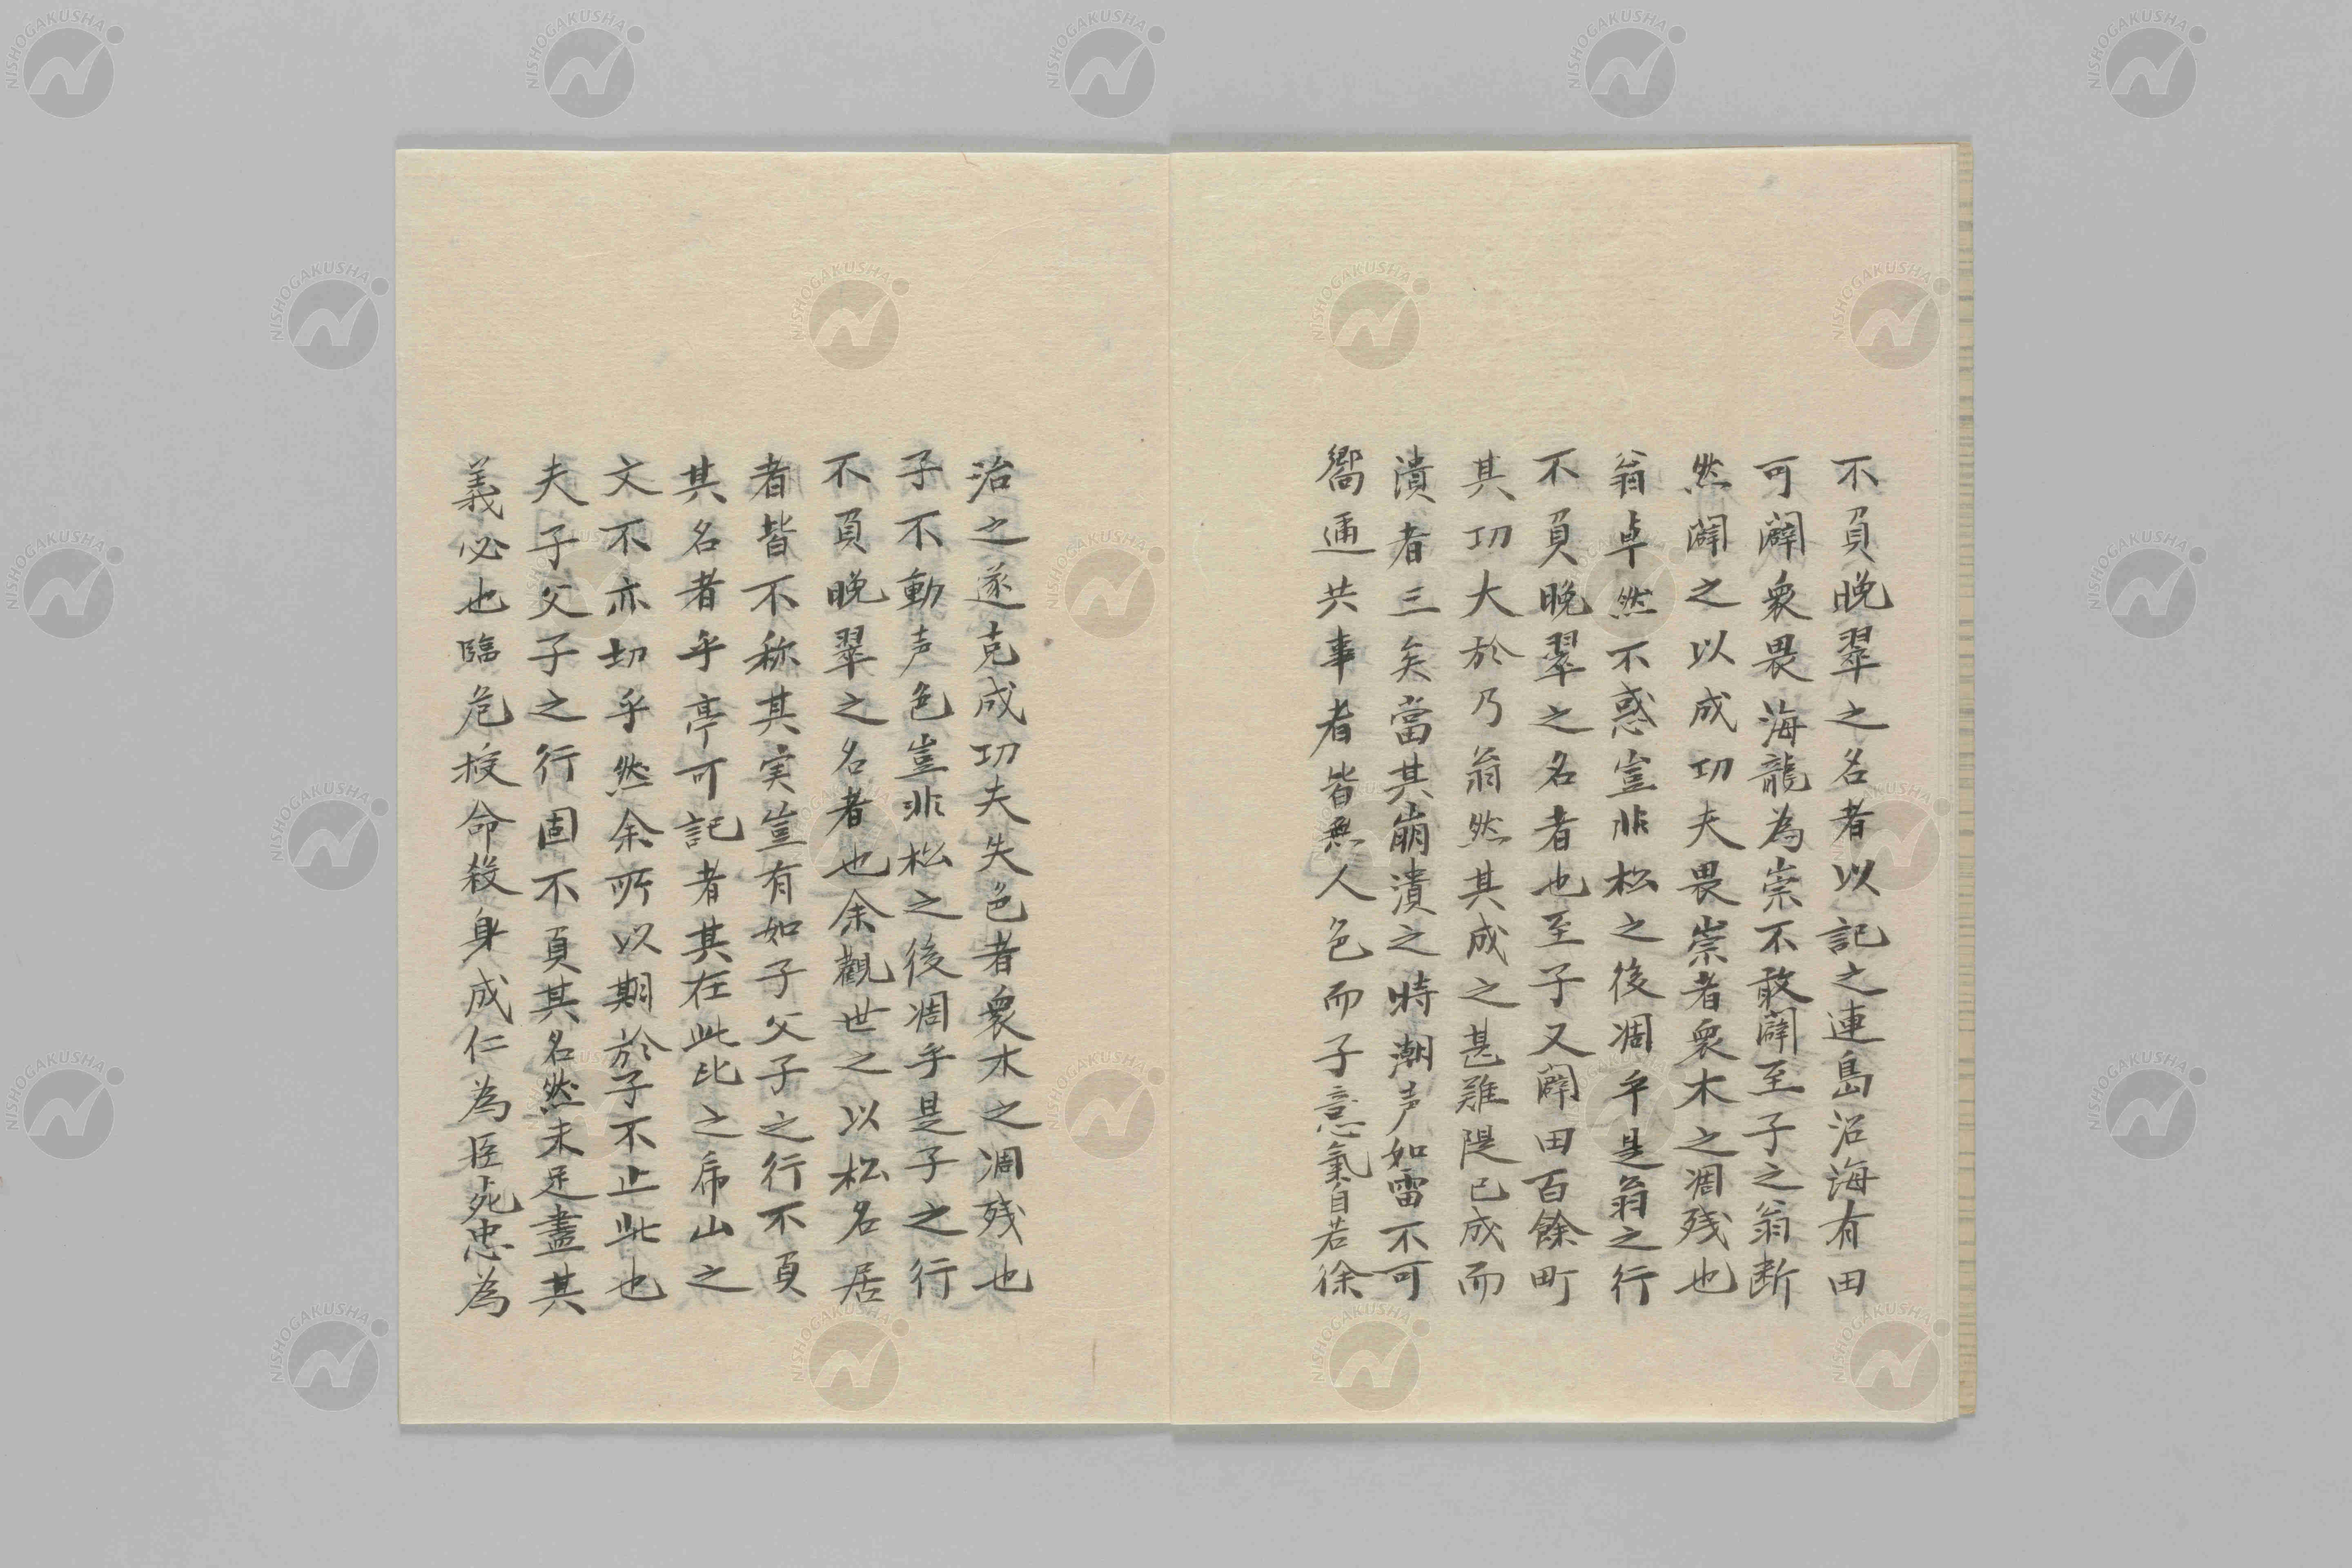 不負晩翠之名者以記之連島沿海有田
可闢衆畏海龍為祟不敢闢至子之翁断
然闢之以成功夫畏祟者衆木之凋残也
翁卓然不惑豈非松之後凋乎是翁之行
不負晩翠之名者也至子又闢田百餘町
其功大於乃翁然其成之甚難隄已成而
潰者三矣當其崩潰之時潮声如雷不可
嚮邇共事者皆無人色而子意氣自若徐
治之遂克成功夫失色者衆木之凋残也
子不動声色豈非松之後凋乎是子之行
不負晩翠之名者也余觀世之以松名居
者皆不称其実豈有如子父子之行不負
其名者乎亭可記者其在此比之席山之
文不亦切乎然余所以期於子不止此也
夫子父子之行固不負其名然未足盡其
義必也臨危授命殺身成仁為臣死忠為
NISHOGAKUSHA